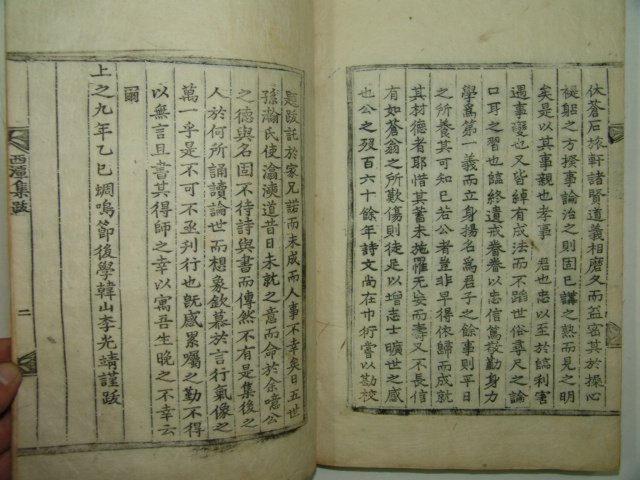 休蒼石旅軒諸賢道義相磨久而益密其於操心
褆躬之方揆事論治之則固已講之熟而見之明
矣是以其事親也孝事 君也忠以至於臨利害
遇事變也又皆綽有成法而不蹈世俗尋尺之論
口耳之習也臨終遺戒眷眷以忠信篤敬勤身力
學爲第一義而立身揚名爲君子之餘事則平日
之所養其可知已若公者豈非早得依歸而成就
其材德者耶惜其蓄未施罹无妄而壽又不長信
有如蒼翁之所歎傷則徒是以增志士曠世之感
也公之歿百六十餘年詩文尚在巾衍嘗以勘校
題跋託於家兄諾而未成而人事不幸矣日五世
孫瀚氏使瀹浹道昔日未就之意而命於余噫公
之德與名固不待詩與書而傳然不有是集後之
人於何所誦讀論世而想象欽慕於言行氣像之
萬一乎是不可不亟刊行也旣感累屬之勤不得
以無言且書其得師之幸以寓吾生晚之不幸云
爾
上之九年乙巳蜩鳴節後學韓山李光靖謹跋
西潭集跋
二